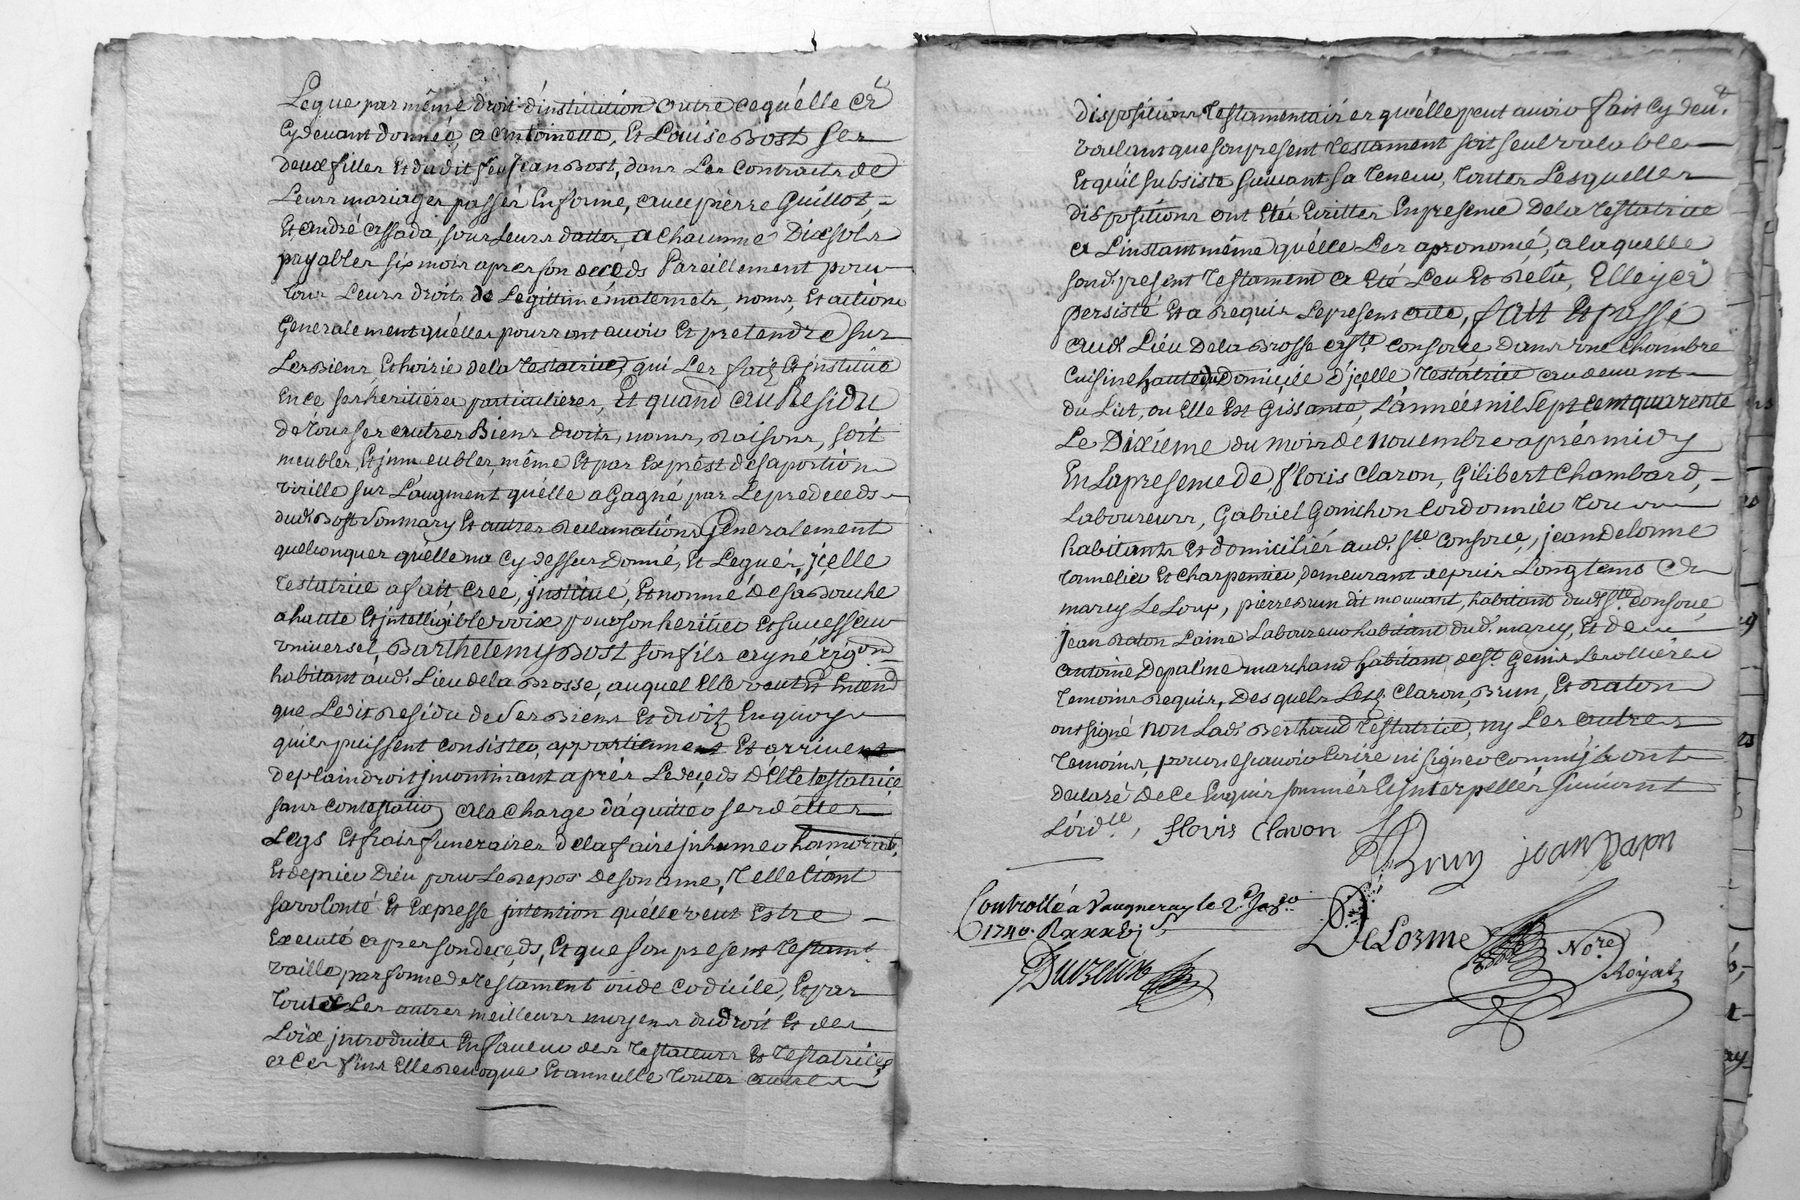 Legue par même droit d'institution outre cequ'elle a
Cy devant donnée, a antoinette, Et Louise Bost ses
deux filles Et dudit feu Jean Bost, dans Les Contracts de
Leurs mariages passés En forme, avec pierre Guillot,
Et andré assada sous Leurs dattes, a Chacune Dix sols
payables six mois apres son deceds Pareillement pour
tous Leurs droits de Legittime maternels, noms, Et actions
Generalement qu'elles pourront avoir Et pretendre sur
Les Biens Et hoirie de la Testatrice, qui Les fait Et institue
En ce ses heritieres particulieres, Et quand au Residu
de tous ses autres Biens droits, noms, Raisons, soit
meubles Et immeubles, même Et par Exprêst de sa portion
virille sur L'augment qu'elle a Gagné par Le predeceds
dud. Bost son mary Et autres Reclamations Generalement
quelconques qu'elle na Cy dessus Donné, Et Legués, jcelle
Testatrice a fait cree, institué, Et nommé de sa Bouche
a haute Et intelligible voix pour son heritier Et successeur
universel, Barthelemy Bost son fils ayné
habitant aud. Lieu de la Brosse, auquel Elle veut Et Entend
que Ledit Residu de ses Biens Et droits En quoy
qu'ils puissent consister, appartiennent Et arrivent
de plain droit incontinant aprés Le deçeds d'Elle testatrice
sans contestation a la Charge d'aquitter ses dettes
Legs Et frais funeraires de la faire inhumer
Et de prier Dieu pour Le Repos de son ame, telle Etant
sa volonté Et Expresse intention qu'elle veut Estre
Executé apres son deçeds, Et que son present Testamt.
vaille par forme de Testament ou de Codicile, Et par
tout Les autres meilleurs moyens du Droit Et des
Loix introduites En faveur des Testateurs Et Testatrices
a Ces fins Elle Revoque Et annulle toutes autres
dispositions Testamentaires qu'elle peut avoir fait Cy devt.
voulant que son present Testament soit seul valable
Et qu'il subsiste suivant sa Teneur, toutes Lesquelles
dispositions ont Eté Ecrittes En presence De la Testatrice
a L'instant même qu'elle Les a prononcé, a laquelle
sond. present Testament a Eté Leu Et Relû, Elle y a
persisté Et a Requis Le present acte, fait Et passé
aud. Lieu De la Brosse Consorce Dans une Chambre
Cuisine haute du Domicile D'jcelle Testatrice au devant
du Lict, ou Elle Est Gissante, L'année mil sept cent quarente
Le Dixieme du mois de novembre aprés midy
En La presence de, floris Claron, Gilibert Chambard,
Laboureurs, Gabriel Gonichon Cordonnier tous
habitants Et domiciliés aud. Ste. Consorce, jean Delorme
tonnelier Et Charpentier demeurant depuis Longtems a
marcy Le Loup, pierre Brun dit mouvant, habitant dud. Ste. Consorce,
jean Raton Lainé Laboureur habitant dud. marcy, Et de
antoine Depalme marchand habitant de St. Genis Les ollieres
temoins Requis, Desquels Les Claron, Brun, Et Raton
ont signé non Lad. Berthaud Testatrice, ny Les autres
temoins, pour ne sçavoir Ecrire ni signer comm' jls ont
declaré De Ce Enquis sommés Et interpellés suivant
L'ord.ce, floris Claron
Brun jean Raton
Controllé a Vaugneray le 2e.
1740. R
DeLorme No.re
Royal